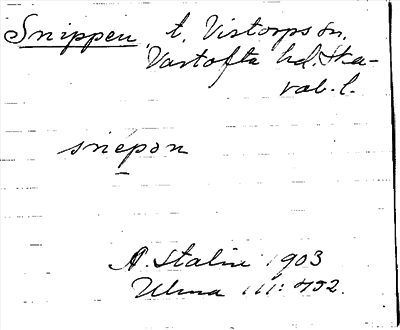 Snippen, t. Vistorps sn.
Vartofta hd. Ska-
rab. l.
snepon
A. Stalin 1903
Ulma 111: 452.